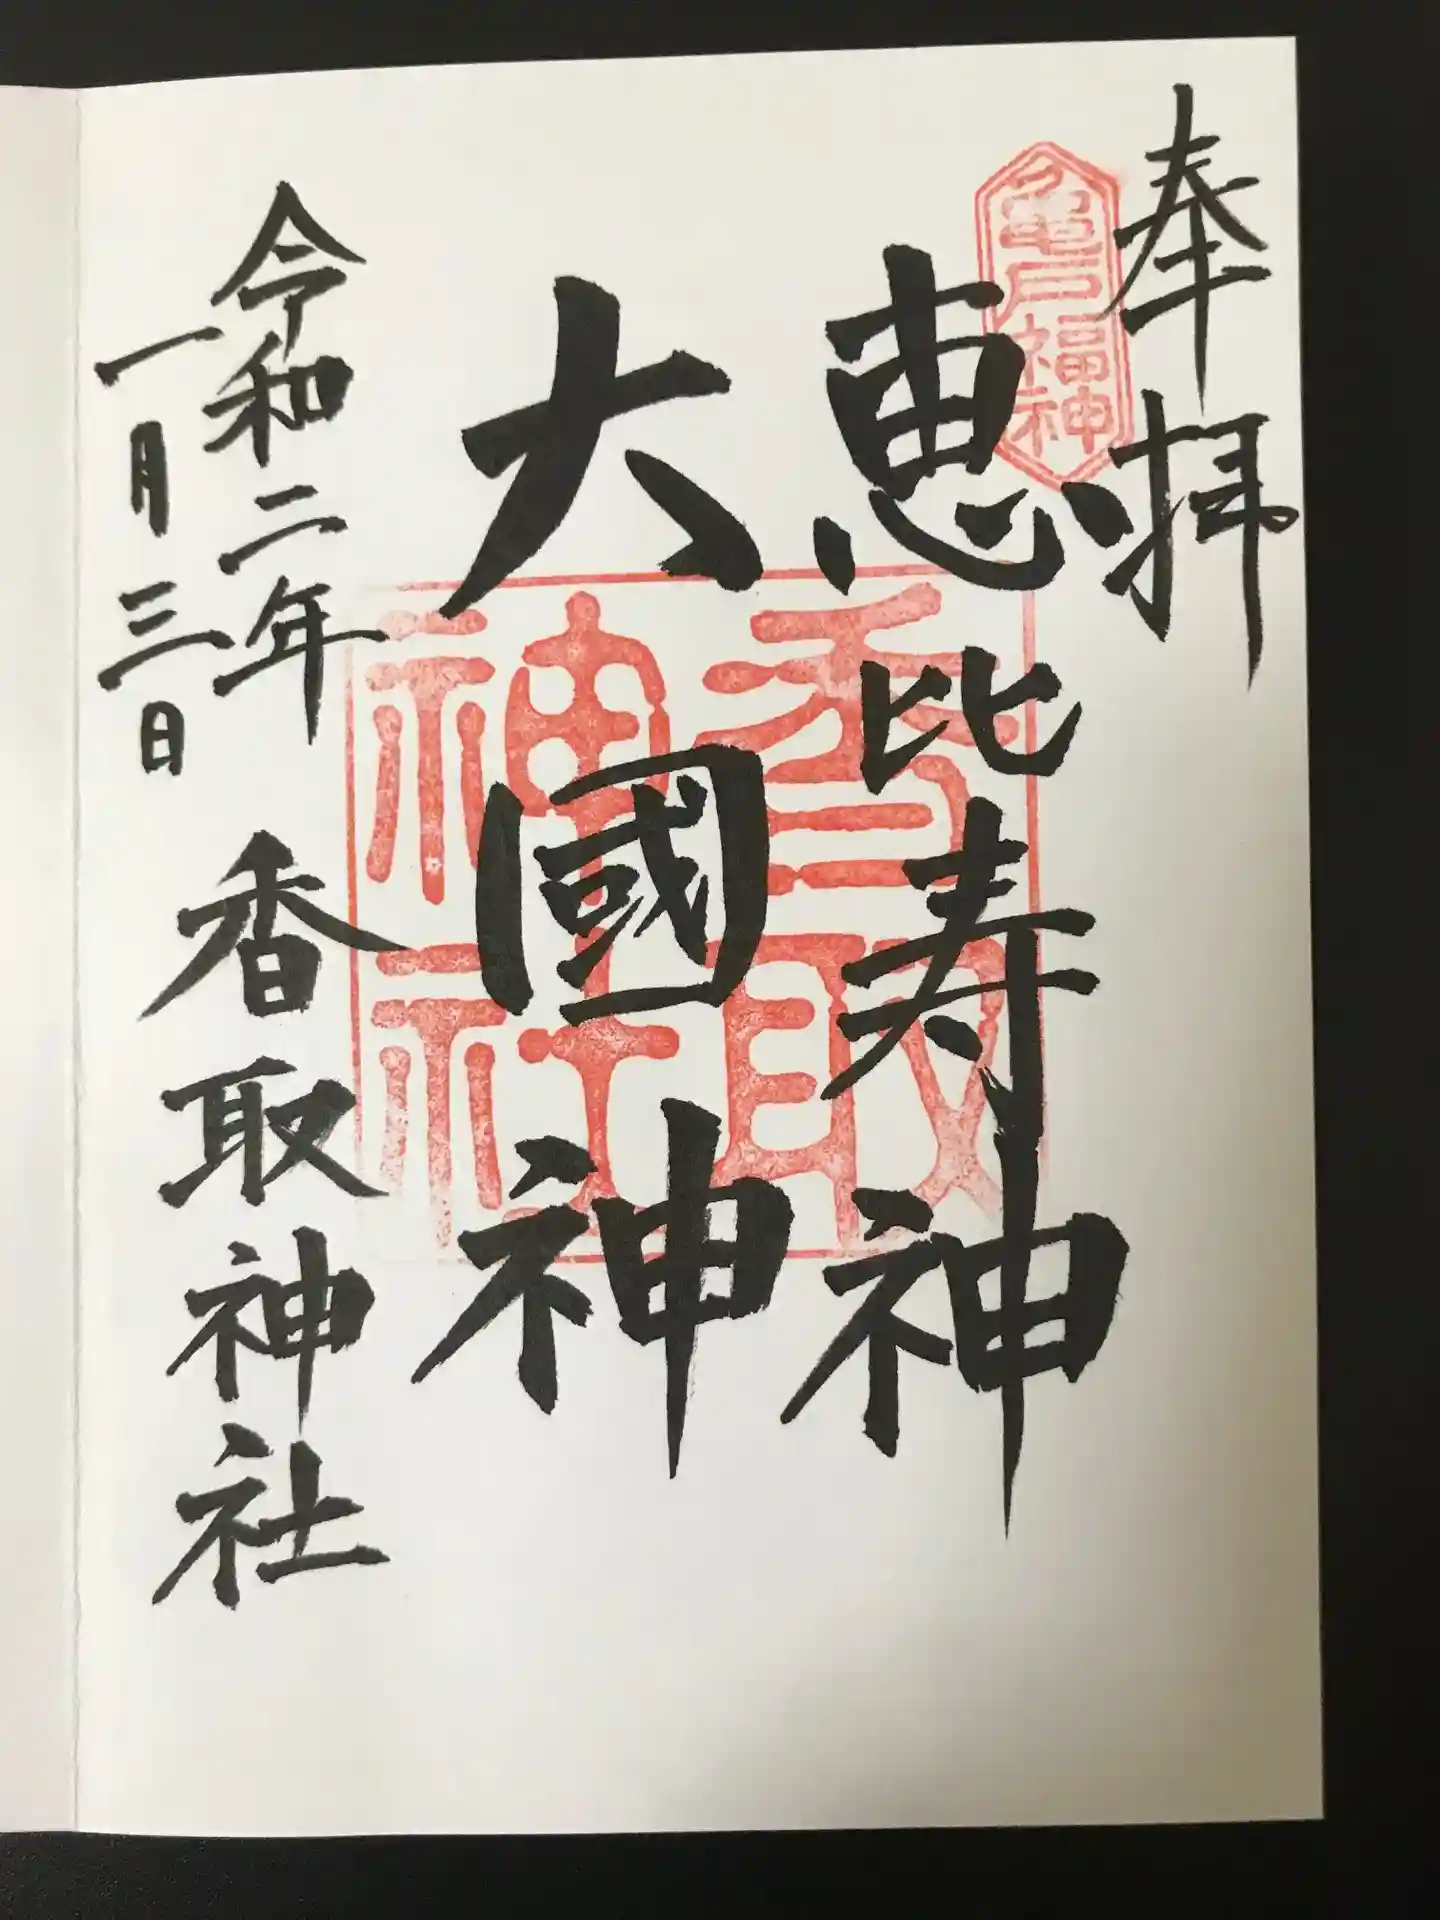 奉拝
亀戸福神
恵比寿神
大國神
香取神社
令和二年
一月三日
香取神社